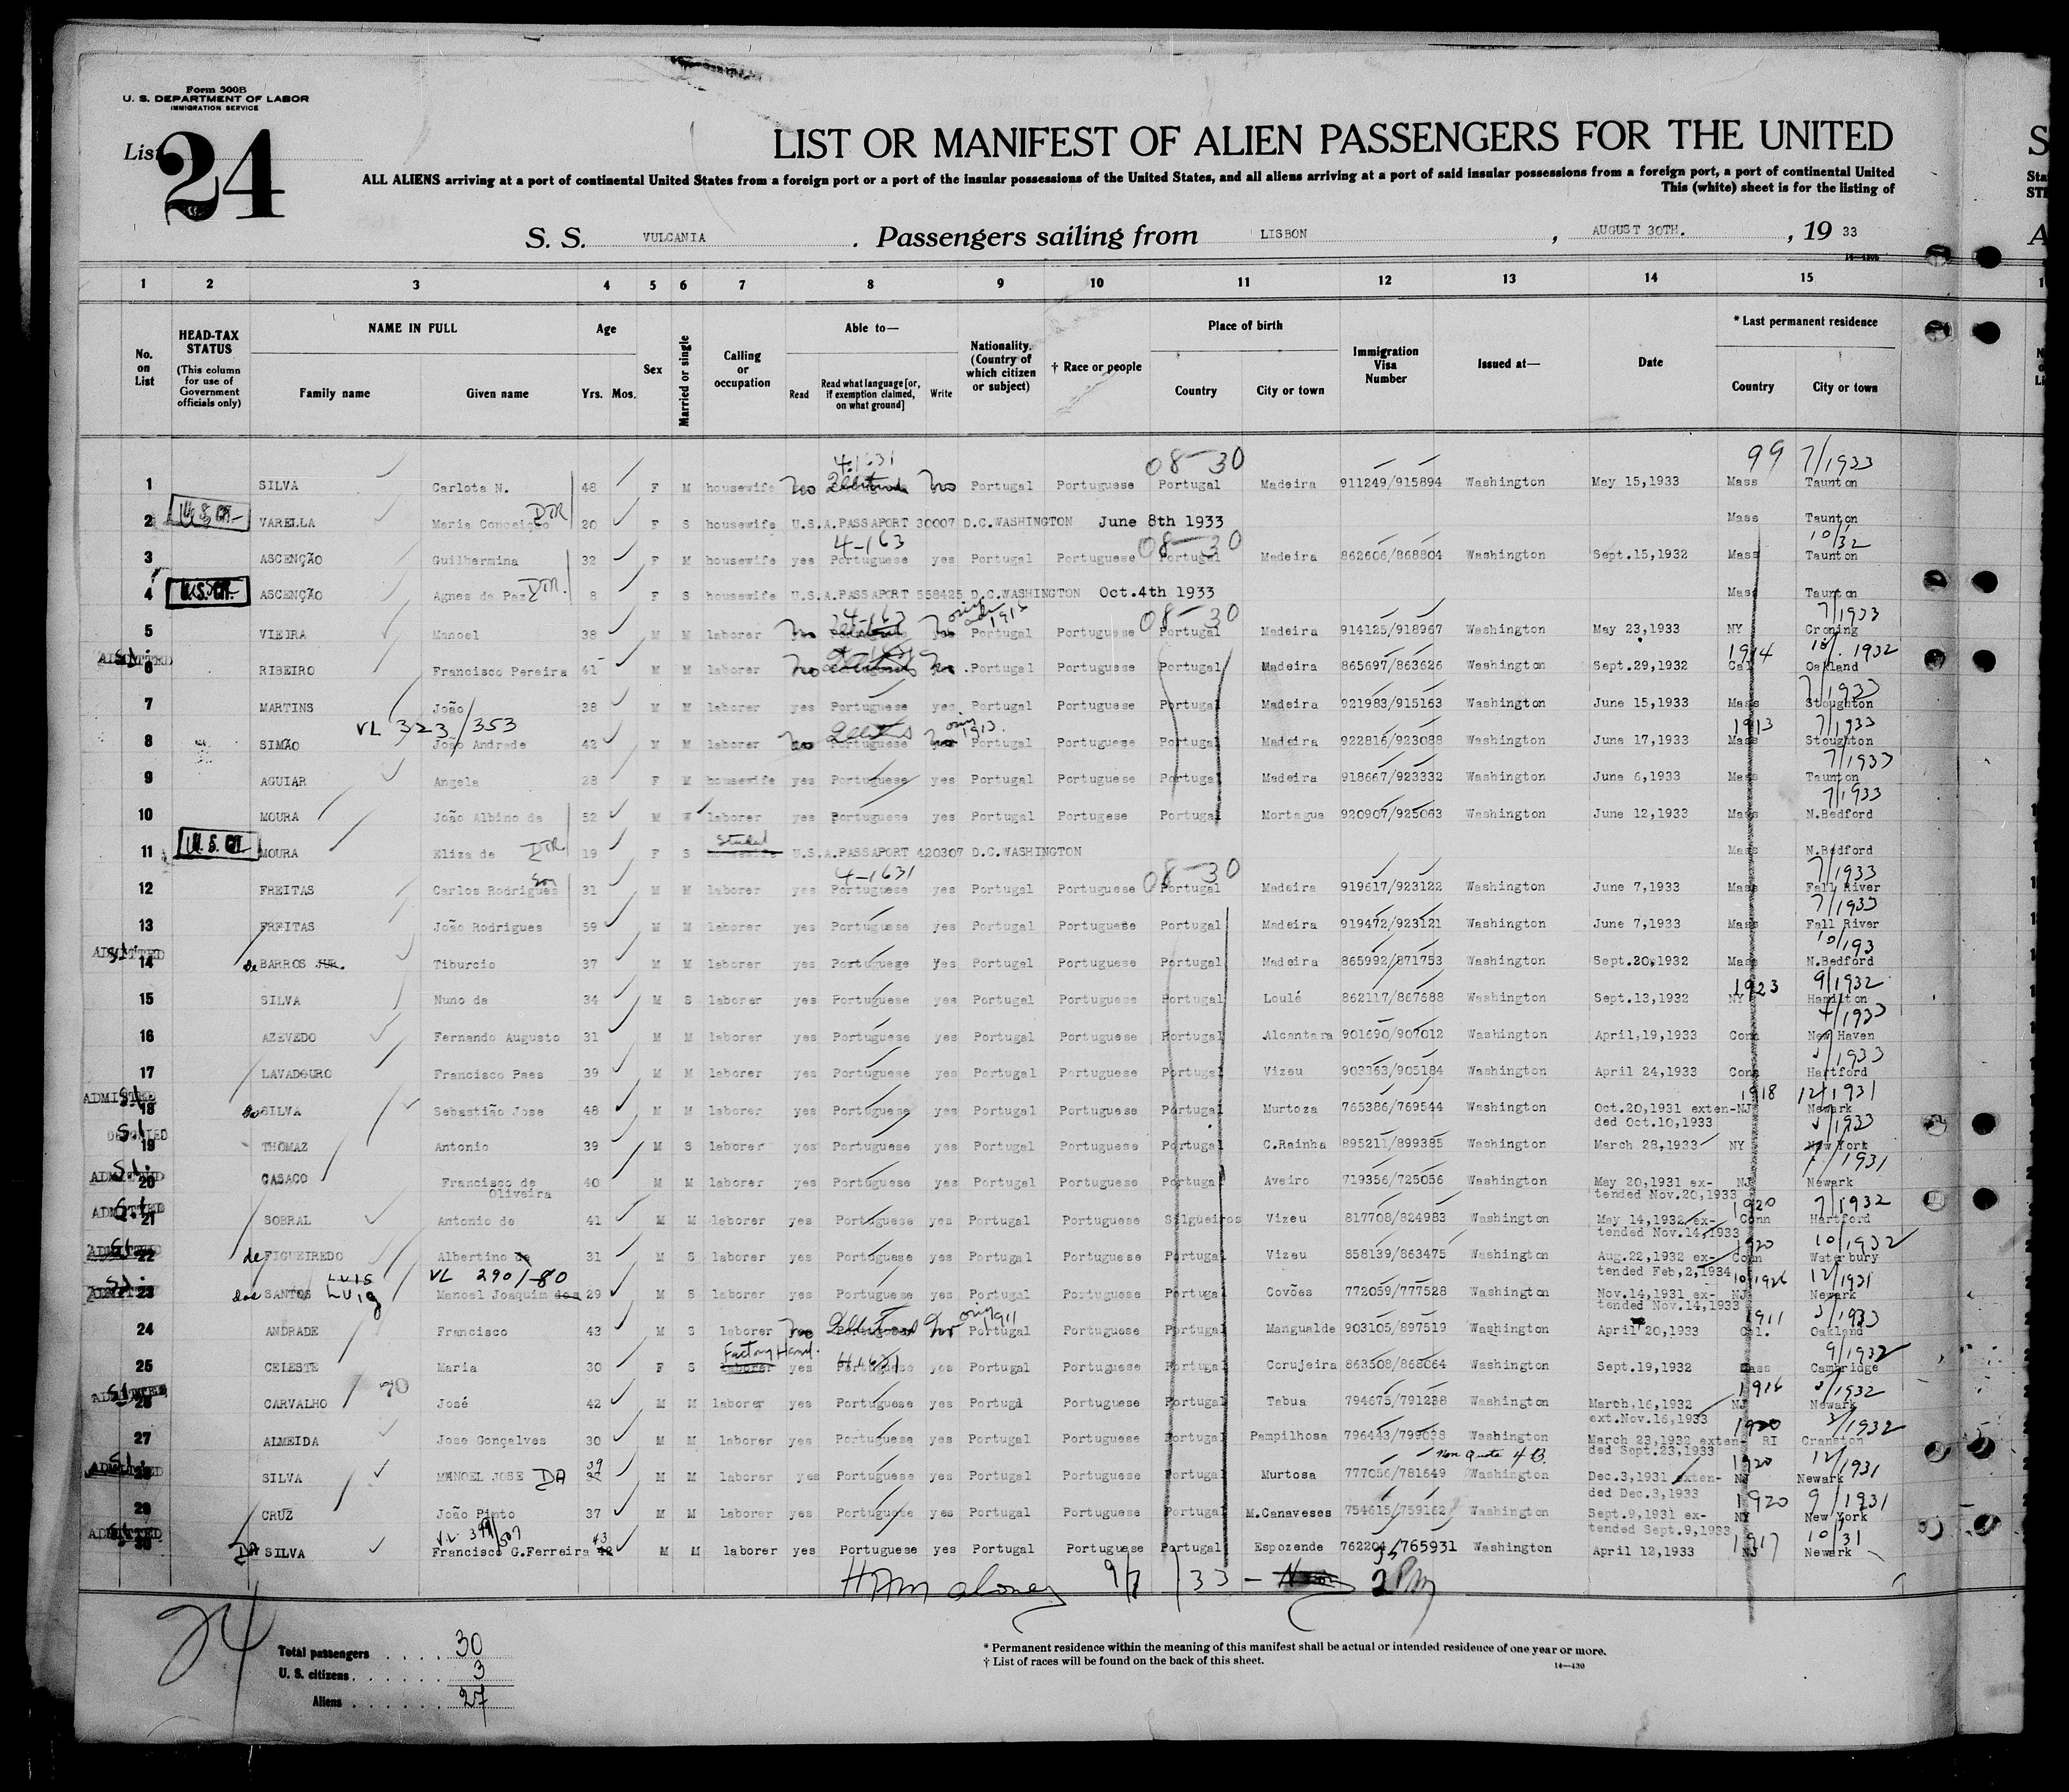 Form 500B
U. S. DEPARTMENT OF LABOR
IMMIGRATION SERVICE
List 24
LIST OR MANIFEST OF ALIEN PASSENGERS FOR THE UNITED
ALL ALIENS arriving at a port of continental United States from a foreign port or a port of the insular possessions of the United States, and all aliens arriving at a port of said insular possessions from a foreign port, a port of continental United
This (white) sheet is for the listing of
S. S. VULCANIA. Passengers sailing from LISBON, AUGUST 30TH., 19 33
1 2 3 4 5 6 7 8 9 10 11 12 13 14 15
No. on List
HEAD-TAX STATUS (This column for use of Government officials only)
NAME IN FULL Family name Given name
Age Yrs. Mos.
Sex
Married or single
Calling or occupation
Able to— Read Read what language [or, if exemption claimed, on what ground] Write
Nationality. (Country of which citizen or subject)
† Race or people
Place of birth Country City or town
Immigration Visa Number
Issued at—
Date
* Last permanent residence Country City or town
4-1631 08-30 99 7/1933
1 SILVA Carlota N. 48 F M housewife no no Portugal Portuguese Portugal Madeira 911249/915894 Washington May 15,1933 Mass Taunton
2 VARELLA Maria Conceição 20 F S housewife U.S.A.PASSAPORT 30007 D.C.WASHINGTON June 8th 1933 Mass Taunton
4-163 08-30 10/32
3 ASCENÇÃO Guilhermina 32 F M housewife yes Portuguese yes Portugal Portuguese Portugal Madeira 862606/868804 Washington Sept.15,1932 Mass Taunton
4 ASCENÇÃO Agnes de Paz 8 F S housewife U.S.A.PASSAPORT 558425 D.C.WASHINGTON Oct.4th 1933 Mass Taunton
08-30 7/1933
5 VIEIRA Manoel 38 M M laborer no Portugal Portuguese Portugal Madeira 914125/918967 Washington May 23,1933 NY Croning
1914 1932
6 RIBEIRO Francisco Pereira 41 M M laborer no no Portugal Portuguese Portugal Madeira 865697/863626 Washington Sept.29,1932 Cal Oakland
7/1933
7 MARTINS João 38 M M laborer yes Portuguese yes Portugal Portuguese Portugal Madeira 921983/915163 Washington June 15,1933 Mass Stoughton
VL 323/353 1913 7/1933
8 SIMÃO João Andrade 42 M M laborer no Portuguese no Portugal Portuguese Portugal Madeira 922816/923088 Washington June 17,1933 Mass Stoughton
7/1933
9 AGUIAR Angela 28 F M housewife yes Portuguese yes Portugal Portuguese Portugal Madeira 918667/923332 Washington June 6,1933 Mass Taunton
7/1933
10 MOURA João Albino de 52 M W laborer yes Portuguese yes Portugal Portugese Portugal Mortagua 920907/925063 Washington June 12,1933 Mass N.Bedford
11 MOURA Eliza de 19 F S housewife U.S.A.PASSAPORT 420307 D.C.WASHINGTON Mass N.Bedford
4-1631 08-30 7/1933
12 FREITAS Carlos Rodrigues 31 M M laborer yes Portuguese yes Portugal Portuguese Portugal Madeira 919617/923122 Washington June 7,1933 Mass Fall River
7/1933
13 FREITAS João Rodrigues 59 M M laborer yes Portuguese yes Portugal Portuguese Portugal Madeira 919472/923121 Washington June 7,1933 Mass Fall River
10/193
14 de BARROS JUR. Tiburcio 37 M M laborer yes Portuguese yes Portugal Portuguese Portugal Madeira 865992/871753 Washington Sept.20,1932 Mass N.Bedford
1923 9/1932
15 SILVA Nuno da 34 M S laborer yes Portuguese yes Portugal Portuguese Portugal Loulé 862117/867688 Washington Sept.13,1932 NY Hamilton
4/1933
16 AZEVEDO Fernando Augusto 31 M M laborer yes Portuguese yes Portugal Portuguese Portugal Alcantara 901690/907012 Washington April,19,1933 Conn New Haven
17 LAVADOURO Francisco Paes 39 M M laborer yes Portuguese yes Portugal Portuguese Portugal Vizeu 903363/905184 Washington April 24,1933 Conn Hartford
ADMITTED 1918 12/1931
18 da SILVA Sebastião Jose 48 M M laborer yes Portuguese yes Portugal Portuguese Portugal Murtoza 765386/769544 Washington Oct.20,1931 exten-NJ Newark
ded Oct.10,1933
19 THOMAZ Antonio 39 M S laborer yes Portuguese yes Portugal Portuguese Portugal C.Rainha 895211/899385 Washington March 28,1933 NY New York
20 CASACO Francisco de Oliveira 40 M M laborer yes Portuguese yes Portugal Portuguese Portugal Aveiro 719356/725056 Washington May 20,1931 ex- NJ Newark
tended Nov.20,1933
1920 7/1932
21 SOBRAL Antonio de 41 M M laborer yes Portuguese yes Portugal Portuguese Silgueiros Vizeu 817708/824983 Washington May 14,1932 ex- Conn Hartford
tended Nov.14,1933
1920 10/1932
22 de FIGUEIREDO Albertino de 31 M S laborer yes Portuguese yes Portugal Portuguese Portugal Vizeu 858139/863475 Washington Aug.22,1932 ex- Conn Waterbury
tended Feb,2,1934
Luis VL 290/-80 10/1926 12/1931
23 dos SANTOS Manoel Joaquim dos 29 M S laborer yes Portuguese yes Portugal Portuguese Portugal Covões 772059/777528 Washington Nov.14,1931 ex- NJ Newark
tended Nov.14,1933
1911 3/1933
24 ANDRADE Francisco 43 M S laborer no Portugal Portuguese Portugal Mangualde 903105/897519 Washington April 20,1933 Cal. Oakland
Factory Hand. 9/1932
25 CELESTE Maria 30 F S laborer yes Portuguese yes Portugal Portuguese Portugal Corujeira 863508/868064 Washington Sept.19,1932 Mass Cambridge
1916 3/1932
26 CARVALHO José 42 M M laborer yes Portuguese yes Portugal Portuguese Portugal Tabua 794675/791238 Washington March,16,1932 NJ Newark
ext.Nov.16,1933
1920 3/1932
27 ALMEIDA Jose Gonçalves 30 M M laborer yes Portuguese yes Portugal Portuguese Portugal Pampilhosa 796443/799038 Washington March 23,1932 exten- RI Cranston
ded Sept.23,1933
Non Quota 4 B. 1920 12/1931
28 SILVA MANOEL JOSE DA M M laborer yes Portuguese yes Portugal Portuguese Portugal Murtosa 777056/781649 Washington Dec.3,1931 exten- NJ Newark
ded Dec.3,1933
1920 9/1931
29 CRUZ João Pinto 37 M M laborer yes Portuguese yes Portugal Portuguese Portugal M.Canaveses 754615/759162 Washington Sept.9,1931 ex- NY New York
tended Sept.9,1933
1917 10/31
30 DA SILVA Francisco G.Ferreira 43 M M laborer yes Portuguese yes Portugal Portuguese Portugal Espozende 762204/765931 Washington April 12,1933 NJ Newark
9/7/33 - 2 PM
24
Total passengers 30
U. S. citizens 3
Aliens 27
* Permanent residence within the meaning of this manifest shall be actual or intended residence of one year or more.
† List of races will be found on the back of this sheet.
14—430